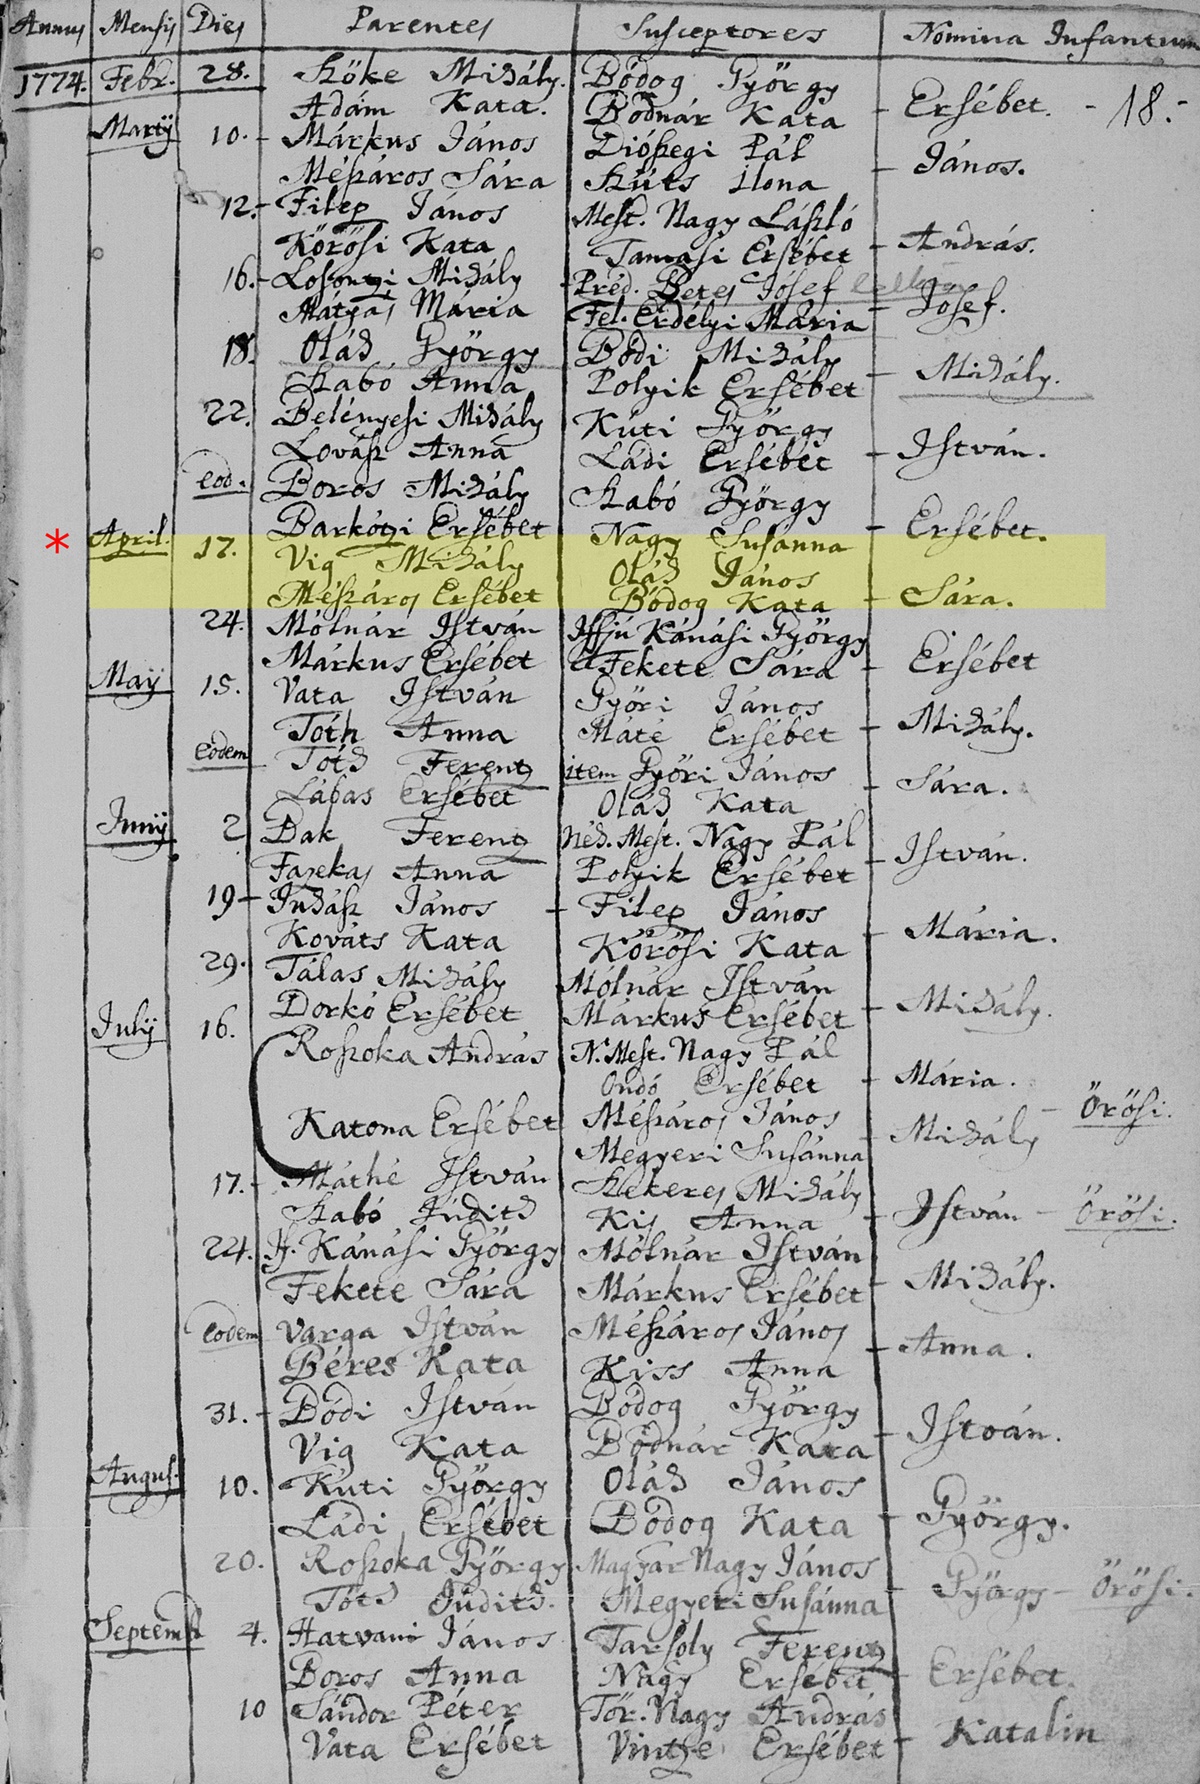 Annus Mensis Dies Parentes Susceptores Nomina Infantum
1774. Febr. 28. Szőke Mihály. Bódog György
Adám Kata. Bodnár Kata - Ersébet. - 18.-
Martÿ 10. - Márkus János Diószegi Pál
Mészáros Sára Szűts Ilona - János.
12. - Filep János Mest. Nagy László
Kőrősi Kata Tamasi Ersébet - András.
16. - Losontzi Mihály Préd. Betes Jósef
Mátyás Mária Fel. Erdélyi Mária - Jósef.
18. Oláh György Bódi Mihály
Szabó Anna Polyik Ersébet - Mihály.
22. Belényesi Mihály Kúti György
Lovász Anna Ládi Ersébet - István.
eod. Boros Mihály Szabó György
Barkótzi Ersébet Nagy Susanna - Ersébet.
* April. 17. Vig Mihály Oláh János
Mészáros Ersébet Bódog Kata - Sára.
24. Mólnár István Ifjú Kánási György
Márkus Ersébet et Fekete Sára - Ersébet
Maÿ 15. Vata István Győri János
Tóth Anna Máté Ersébet - Mihály.
eodem Tóth Ferentz item Győri János
Lábas Ersébet Oláh Kata - Sára.
Junÿ 2 Dak Ferentz Néh. Mest. Nagy Pál
Fazekas Anna Polyik Ersébet - István.
19 - Juhász János - Filep János
Kováts Kata Kőrősi Kata - Mária.
29. Tálas Mihály Mólnár István
Dorkó Ersébet Márkus Ersébet - Mihály.
Julÿ 16. Roszoka András N. Mest. Nagy Pál
Ondó Ersébet - Mária.
Katona Ersébet Mészáros János - Örösi.
Megyeri Susánna - Mihály
17. - Máthé István Szekeres Mihály
Szabó Judith Kis Anna - István - Örösi.
24. If. Kánási György Mólnár István
Fekete Sára Márkus Ersébet - Mihály.
eodem Varga István Mészáros János
Béres Kata Kiss Anna - Anna.
31. - Bódi István Bódog György
Vig Kata Bodnár Kata - István.
August. 10. Kúti György Oláh János
Ládi Ersébet Bódog Kata - György.
20. Roszoka György Magyar Nagy János
Tóth Judith. Megyeri Susánna - György - Örösi.
Septemb. 4. Hatvani János Tarsoly Ferentz
Boros Anna Nagy Ersébet - Ersébet.
10 Sándor Péter Tör. Nagy András
Vata Ersébet Vintze Ersébet - Katalin